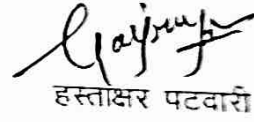 हस्ताक्षर पटवारी